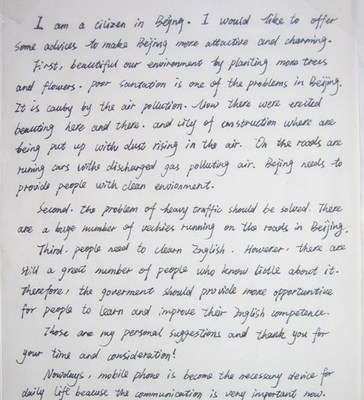 I am a citizen in Beijng. I would like to offer
some advices to make Beijing more attactive and charming.
First, beautiful our environment by planting more trees
and flowers. poor santation is one of the problems in Beijing.
It is cauby by the air pollution. Now there were
beauting here and there. and city of constrution where are
being put up with dust rising in the air. On the roads are
runing cars withe discharged gas polluting air. Bejing needs to
provide people with clean envionment.
Second. the problem of heavy traffic should be solved. There
are a huge number of vechies running on the roads in Beijing.
Third. people need to clearn English. However, there are
still a great number of people who know liddle about it.
Therefore, the goverment should provide more opportunitive
for people to learn and improve their English competence.
Those are my personal suggestions and thank you for
your time and consideration!
Nowdays, mobile phone is become the necessary device for
daily life beacuse the communication is very important now.